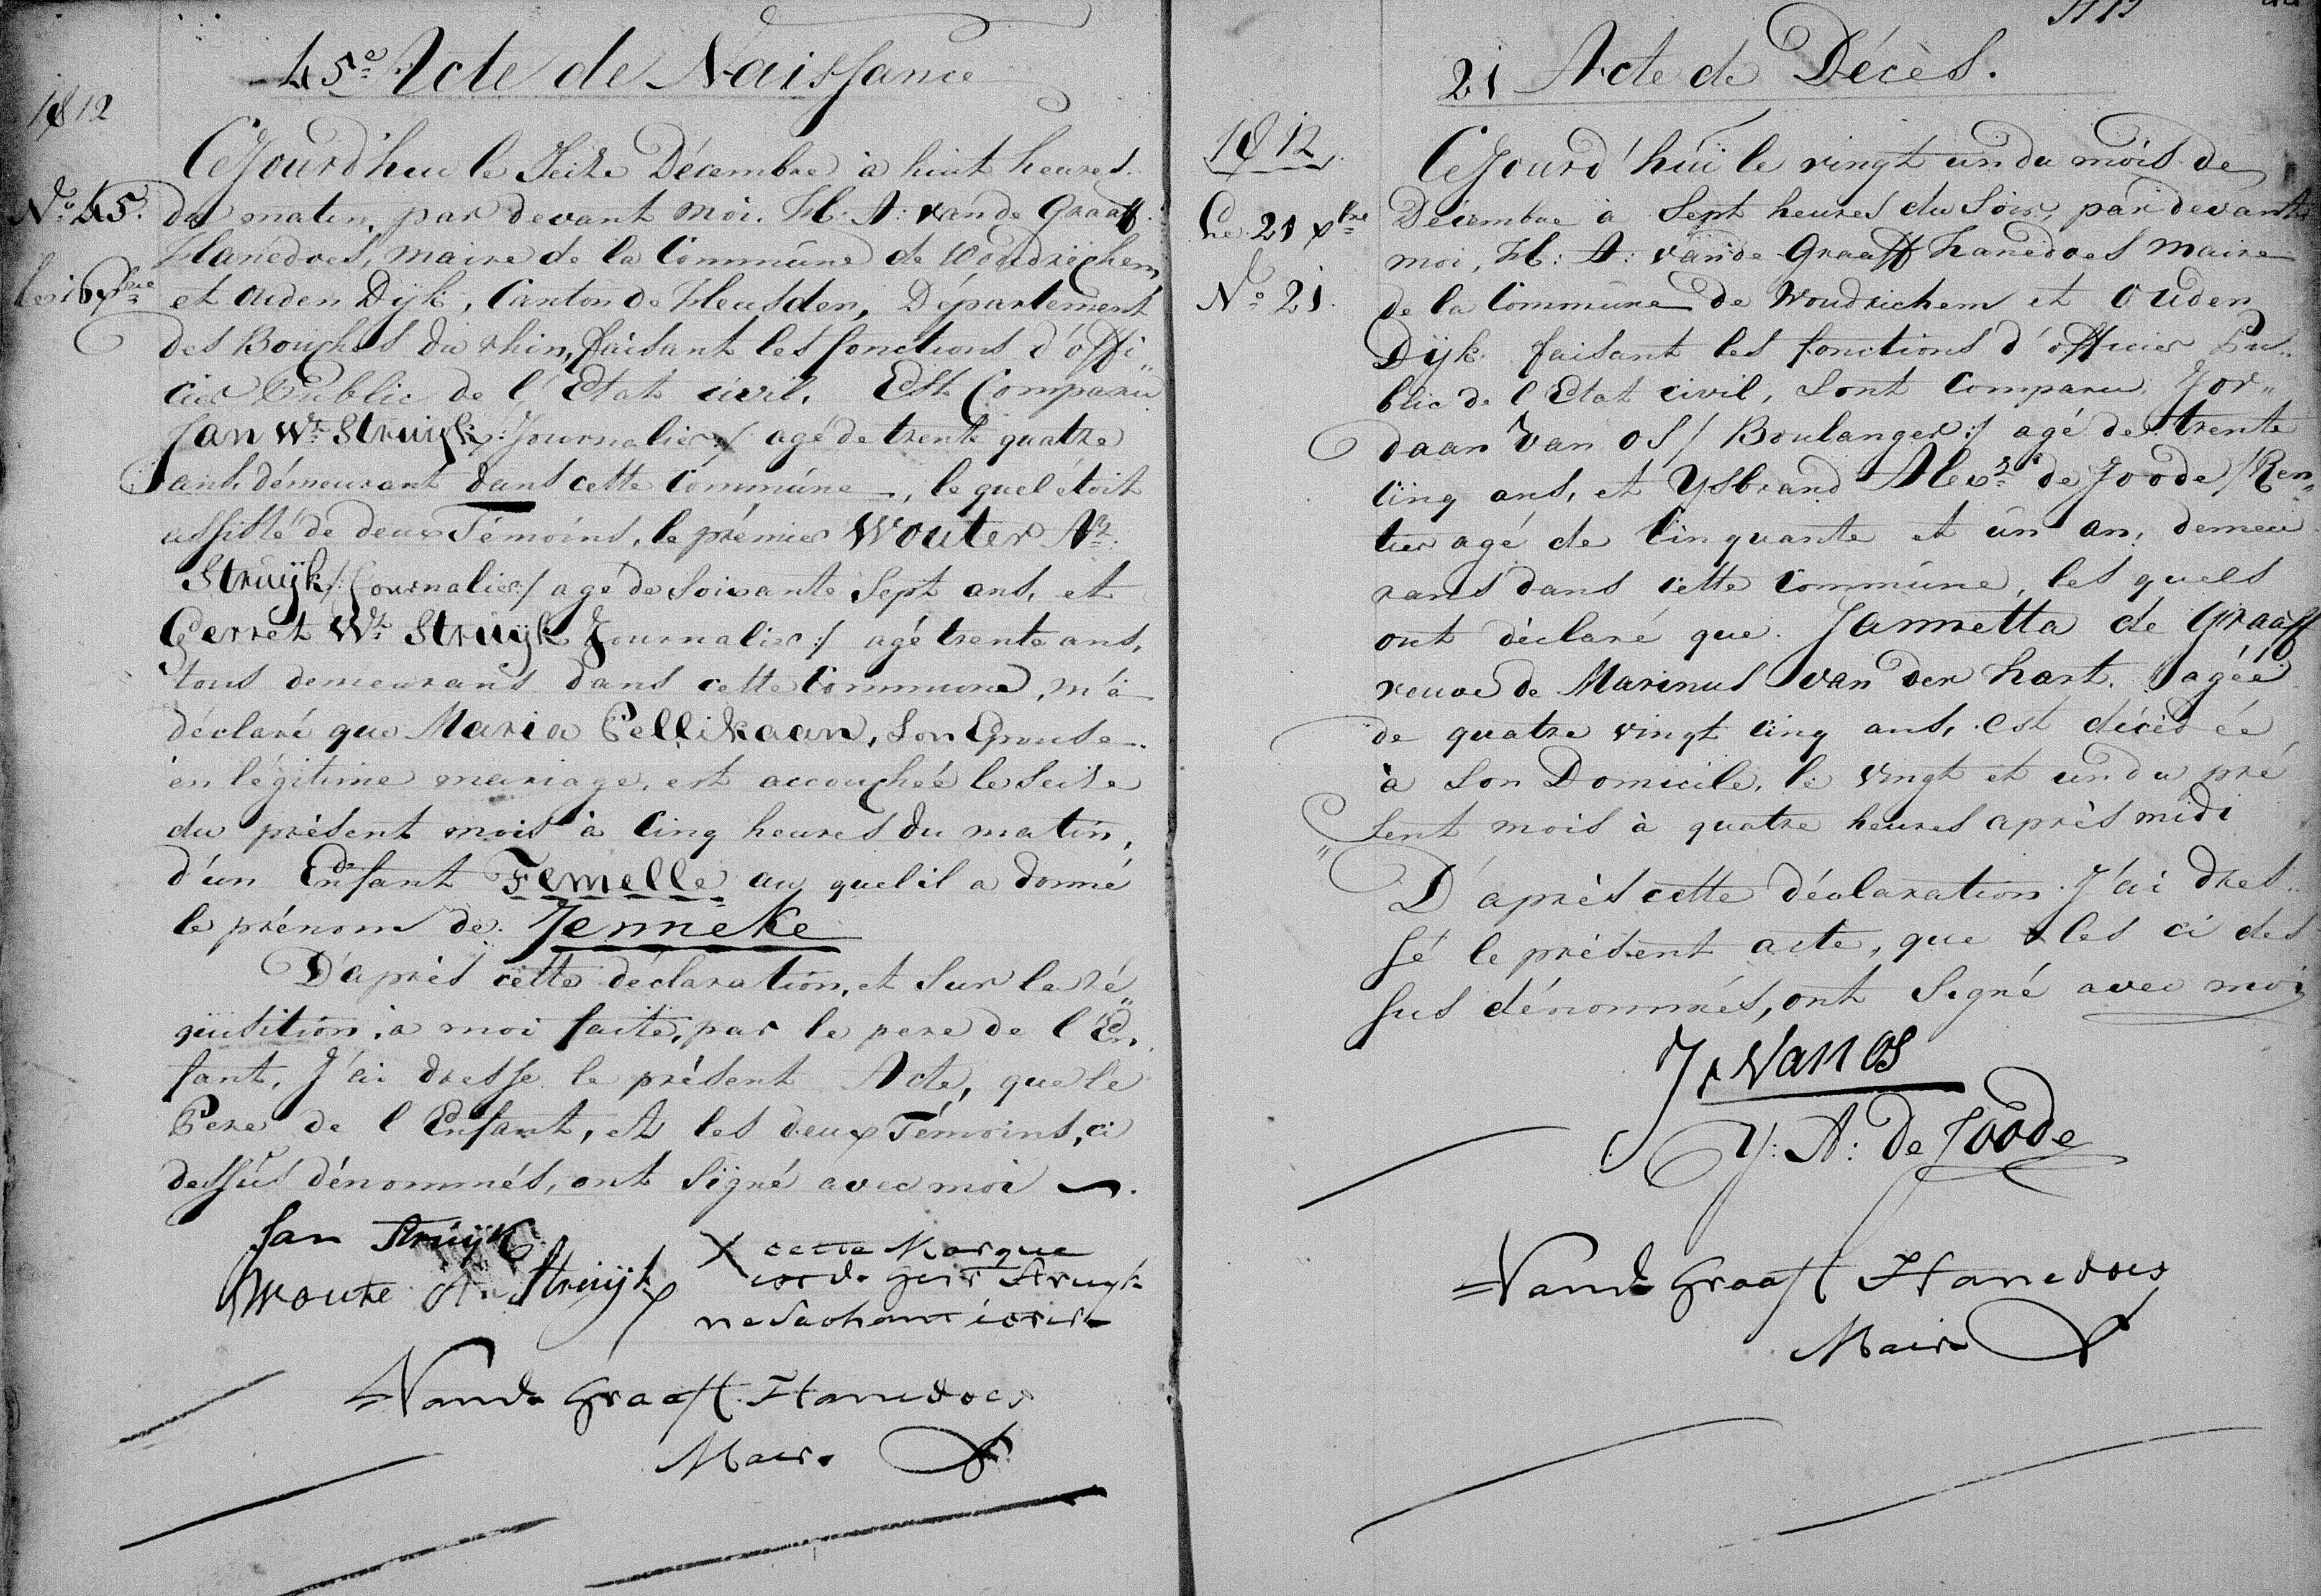 45e Acte de Naissance
1812
Cejourd'hui le Seize Décembre à huit heures
No. 45.
du matin, par devant moi. H: A: van de Graaff
Hanedoes, maire de la Commune de Woudrichem,
le 16 xbre
et Ouden Dijk, Canton de Heusden, Département
des Bouches du rhin, faisant les fonctions d'offi„
cier Public de l'Etat civil. Est Comparu
Jan Wr. Struijk /:Journalier:/ agé de trente quatre
ans, démeurant dans cette Commune, le quel étoit
assisté de deux Témoins, le prémier Wouter At.
Struijk /:Journalier:/ agé de Soixante Sept ans, et
Gerret Wt. Struijk Journalier:/ agé trente ans,
tous demeurans dans cette Commune, m'a
déclaré que Maria Pellikaan, Son Epouse
en légitime mariage, est accouchéé le Seize
du présent mois à Cinq heures du matin,
d'un Enfant Femelle au quel il a donné
le prénom de Jenneke
D'après cette déclaration, et Sur la ré„
quisition, à moi faite, par le pere de l'En„
fant, J'ai dresse le présent Acte, que le
Pere de l Enfant, et les deux Témoins, ci
dessus dénommés, ont Signé avec moi
Jan Struijk
Woute At. Struijk
X cette Marque
est de Gerr Struyk
ne Sachant ecrire
Vande Graaff Hanedoes
Maire
21 Acte de Décès.
1812.
Cejourd'hui le vingt un du mois de
Le 21 xbre
Décembre à Sept heures du Soir, par devant
moi, H: A: van de Graaff hanedoes Maire
No. 21.
de la Commune de Woudrichem et Ouden
Dijk faisant les fonctions d'officier Pu„
blic de l'Etat civil, Sont Comparu Jor„
daan Van OS /Boulanger:/ agé de trente
Cinq ans, et Ysbrand Alexr. de Joode /Ren„
tier agé de Cinquante et un an, demeu
rans dans cette Commune, les quels
ont déclaré que Jannetta de Graaff
veuve de Marinus van der hart. agéé
de quatre vingt Cinq ans, est décédéé
à Son Domicile, le vingt et un du pré
„Sent mois à quatre heures après midi
D'après cette déclaration J'ai dres„
sé le présent acte, que les ci des
sus dénommés, ont Signé avec moi
Jr Van OS
Y: A: de Joode
Vande Graaff Hanedoes
Maire